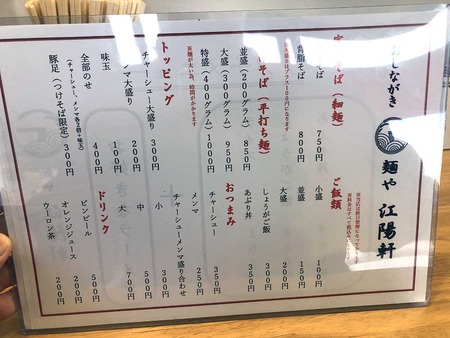 おしながき
麺や 江陽軒
そば（細麺）
そば 750円
背脂そば 800円
大盛りはプラス100円になります
そば（平打ち麺）
並盛（200グラム） 850円
大盛（300グラム） 950円
特盛（400グラム） 1000円
※麺が太い為、時間がかかります
トッピング
チャーシュー大盛り 300円
ンマ大盛り 200円
味玉 100円
全部のせ 400円
（チャーシュー、メンマ各2個+味玉）
豚足（つけそば限定） 300円
ご飯類
小盛 100円
並盛 150円
大盛 200円
しょうがご飯 300円
あぶり丼 350円
おつまみ
チャーシュー 350円
メンマ 250円
チャーシューメンマ盛り合わせ
小 300円
中 500円
大 700円
ドリンク
ビンビール 500円
オレンジジュース 200円
ウーロン茶 200円